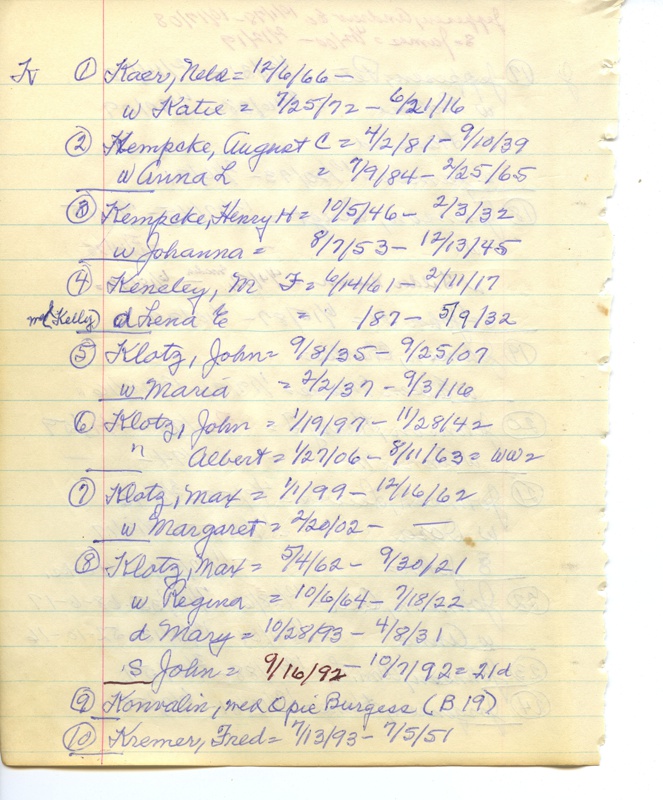 K ① Kaer, Nels = 12/6/66 –
w Katie = 7/25/72 – 6/21/16
② Kempcke, August C = 4/2/81 – 9/10/39
w Anna L = 7/9/84 – 2/25/65
③ Kempcke, Henry H = 10/5/46 – 2/3/32
w Johanna = 8/7/53 – 12/13/45
④ Keneley, M F = 6/14/61 – 2/11/17
Kelly) d Lena E = /87 – 5/9/32
⑤ Klotz, John = 9/8/35 – 9/25/07
w Maria = 2/2/37 – 9/3/16
⑥ Klotz, John = 1/19/97 – 11/28/42
" Albert = 1/27/06 – 8/11/63 = WW2
⑦ Klotz, Max = 1/1/99 – 12/16/62
w Margaret = 2/20/02 – —
⑧ Klotz, Max = 5/4/62 – 9/30/21
w Regina = 10/6/64 – 7/18/22
d Mary = 10/28/93 – 4/8/31
S John = 9/16/92 – 10/7/92 = 21d
⑨ Konvalin, med Opie Burgess (B 19)
⑩ Kremer, Fred = 7/13/93 – 7/5/51